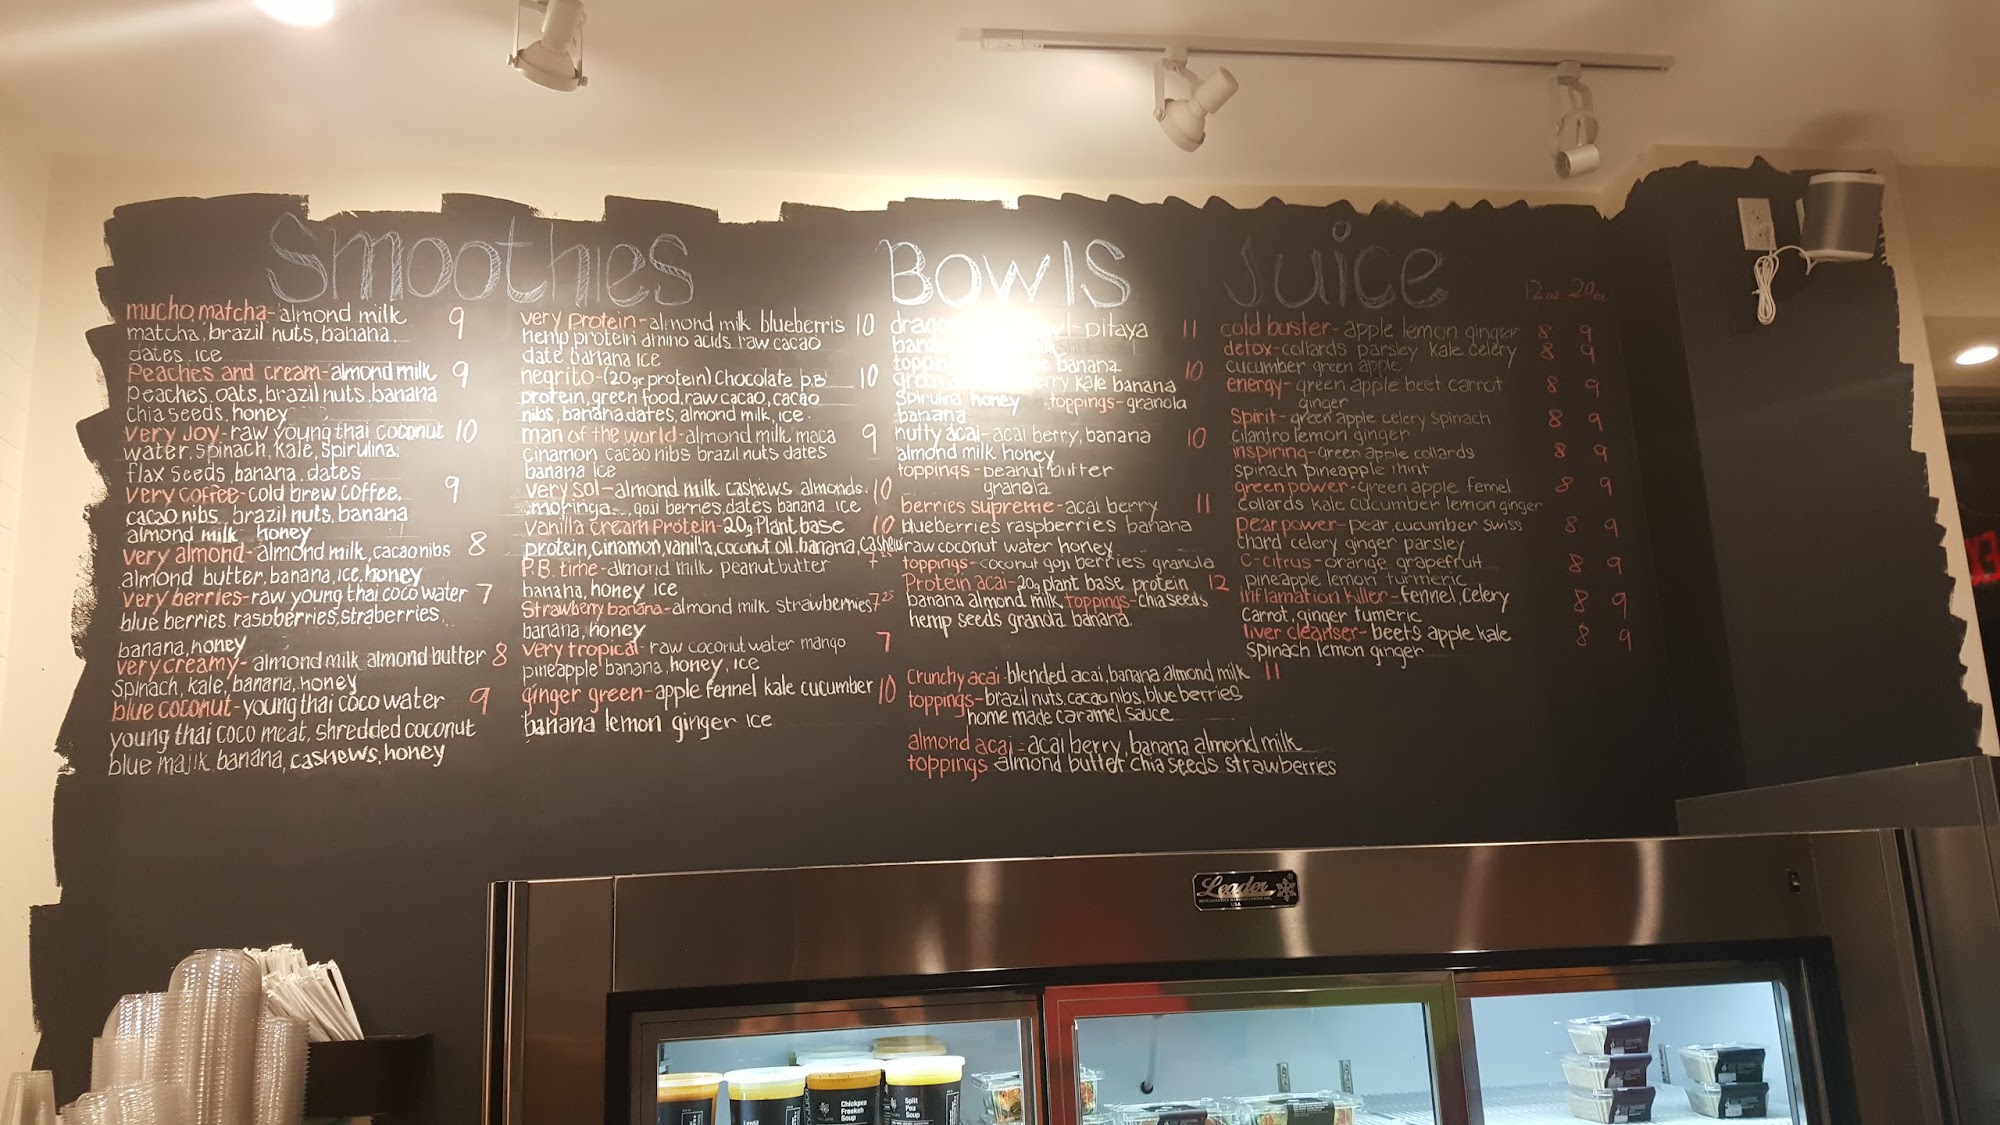 Smoothies
mucho matcha-almond milk 9
matcha, brazil nuts, banana
dates, ice
Peaches and cream-almond milk 9
Peaches, oats, brazil nuts, banana
chia seeds, honey
very Joy-raw young thai coconut 10
water, spinach, kale, spirulina
flax seeds, banana, dates
very coffee-cold brew coffee, 9
cacao nibs brazil nuts, banana
almond milk honey
very almond-almond milk, cacao nibs 8
almond butter, banana, ice, honey
very berries-raw young thai coco water 7
blue berries, raspberries, straberries
banana, honey
very creamy-almond milk almond butter 8
spinach, kale, banana, honey
blue coconut-young thai coco water 9
young thai coco meat, shredded coconut
blue majik banana, cashews, honey
very protein-almond milk blueberris 10
hemp protein amino acids raw cacao
date banana ice
negrito-(20gr protein) Chocolate p.B 10
protein, green food, raw cacao, cacao
nibs, banana dates, almond milk, ice
man of the world-almond milk maca 9
cinamon cacao nibs brazil nuts dates
banana ice
very sol-almond milk cashews almonds 10
moringa goji berries, dates banana ice
vanilla cream Protein-20g Plant base 10
protein, cinamon, vanilla, coconut oil, banana, cashews
P.B. time-almond milk peanut butter 7
banana, honey ice
Strawberry banana-almond milk strawberries 7 25
banana, honey
very tropical-raw coconut water mango 7
pineapple banana, honey, ice
ginger green-apple fennel kale cucumber 10
banana lemon ginger ice
Bowls
pitaya 11
banana
green kale banana 10
Spirulina honey toppings-granola
banana
nutty acai-acai berry, banana 10
almond milk honey
toppings-peanut butter
granola
berries supreme-acai berry 11
blueberries raspberries banana
raw coconut water honey
toppings-coconut goji berries granola
Protein acai-20g plant base protein 12
banana almond milk toppings-chia seeds
hemp seeds granola banana
crunchy acai-blended acai, banana almond milk 11
toppings-brazil nuts, cacao nibs, blue berries
home made caramel sauce
almond acai-acai berry, banana almond milk
toppings almond butter chia seeds strawberries
Juice
12 oz 20 oz
cold buster-apple lemon ginger 8 9
detox-collards parsley kale celery 8 9
cucumber green apple
energy-green apple beet carrot 8 9
ginger
Spirit-green apple celery spinach 8 9
cilantro lemon ginger
inspiring-green apple collards 8 9
spinach pineapple mint
green power-green apple fennel 8 9
collards kale cucumber lemon ginger
pear power-pear, cucumber swiss 8 9
chard celery ginger parsley
C-citrus-orange grapefruit 8 9
pineapple lemon turmeric
inflamation killer-fennel, celery 8 9
carrot, ginger tumeric
liver cleanser-beets apple kale 8 9
spinach lemon ginger
Leader
USA
Chickpea
Freekeh
Soup
Split
Pea
Soup